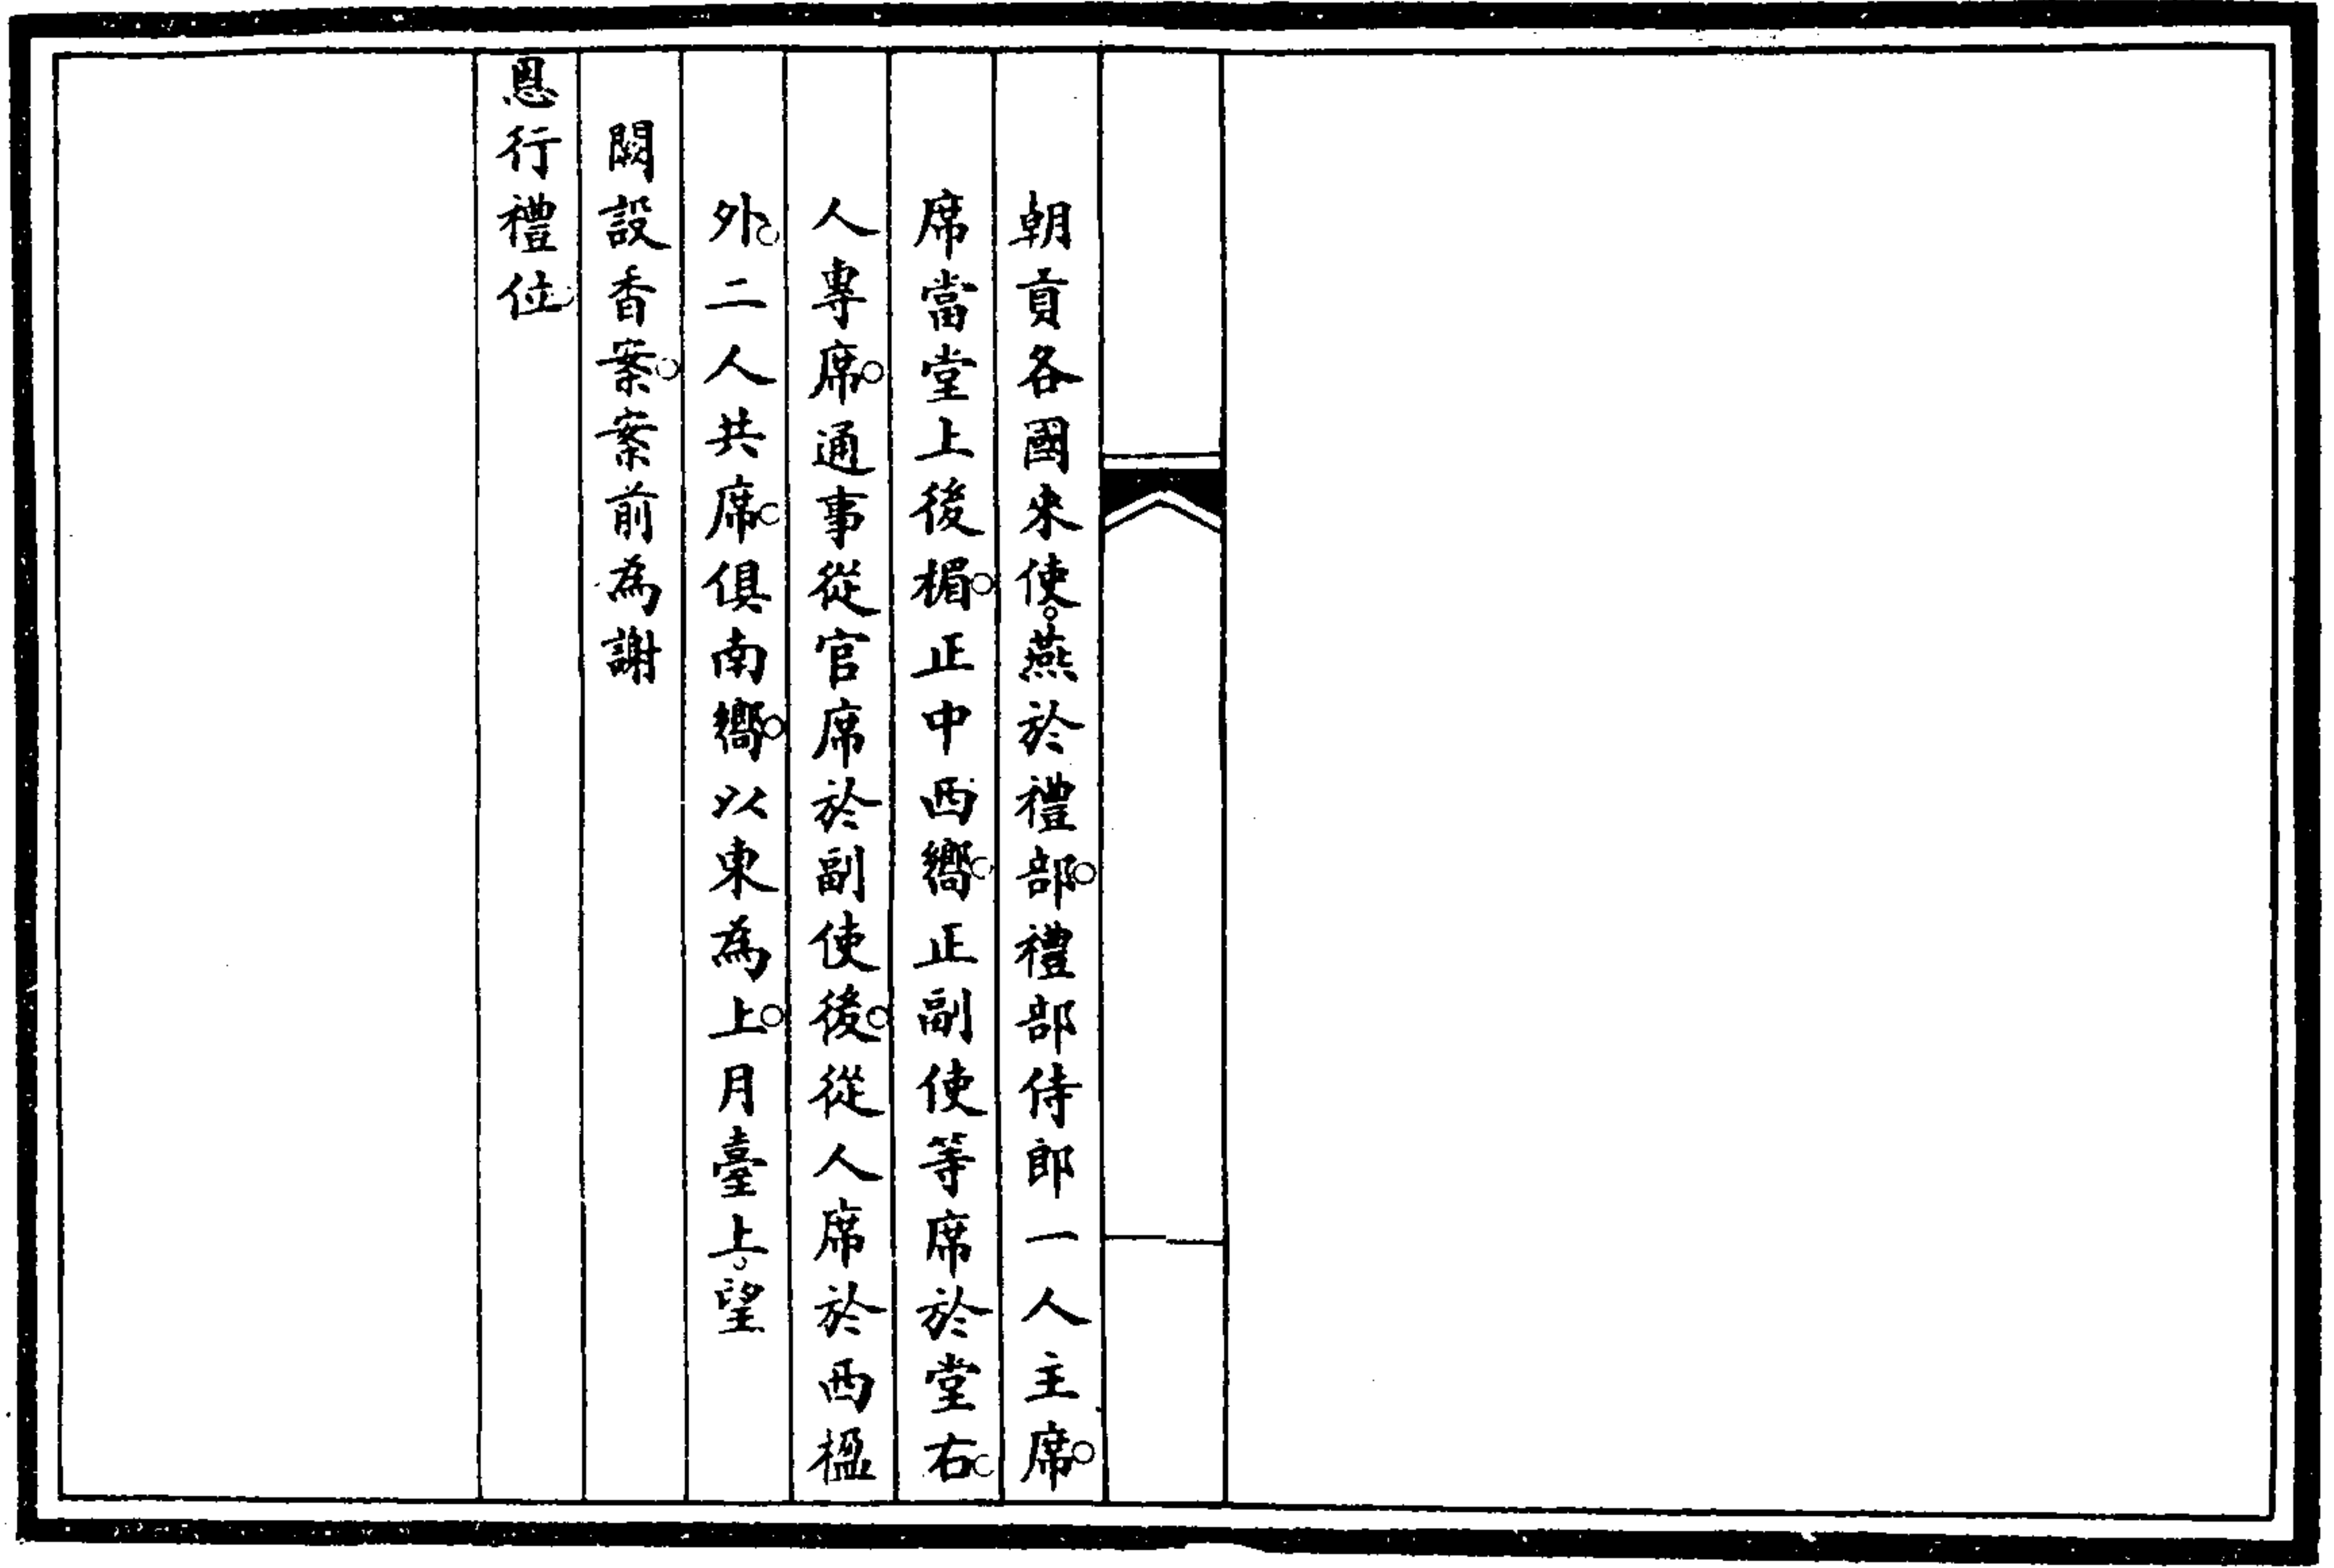 朝貢各國來使。燕於禮部。禮部侍郎一人主席。
席當堂上後楣。正中西嚮。正副使等席於堂右。
人專席。通事從官席於副使後。從人席於西楹
外。二人共席。俱南嚮。以東為上。月臺上。望
闕設香案。案前為謝
恩行禮位。